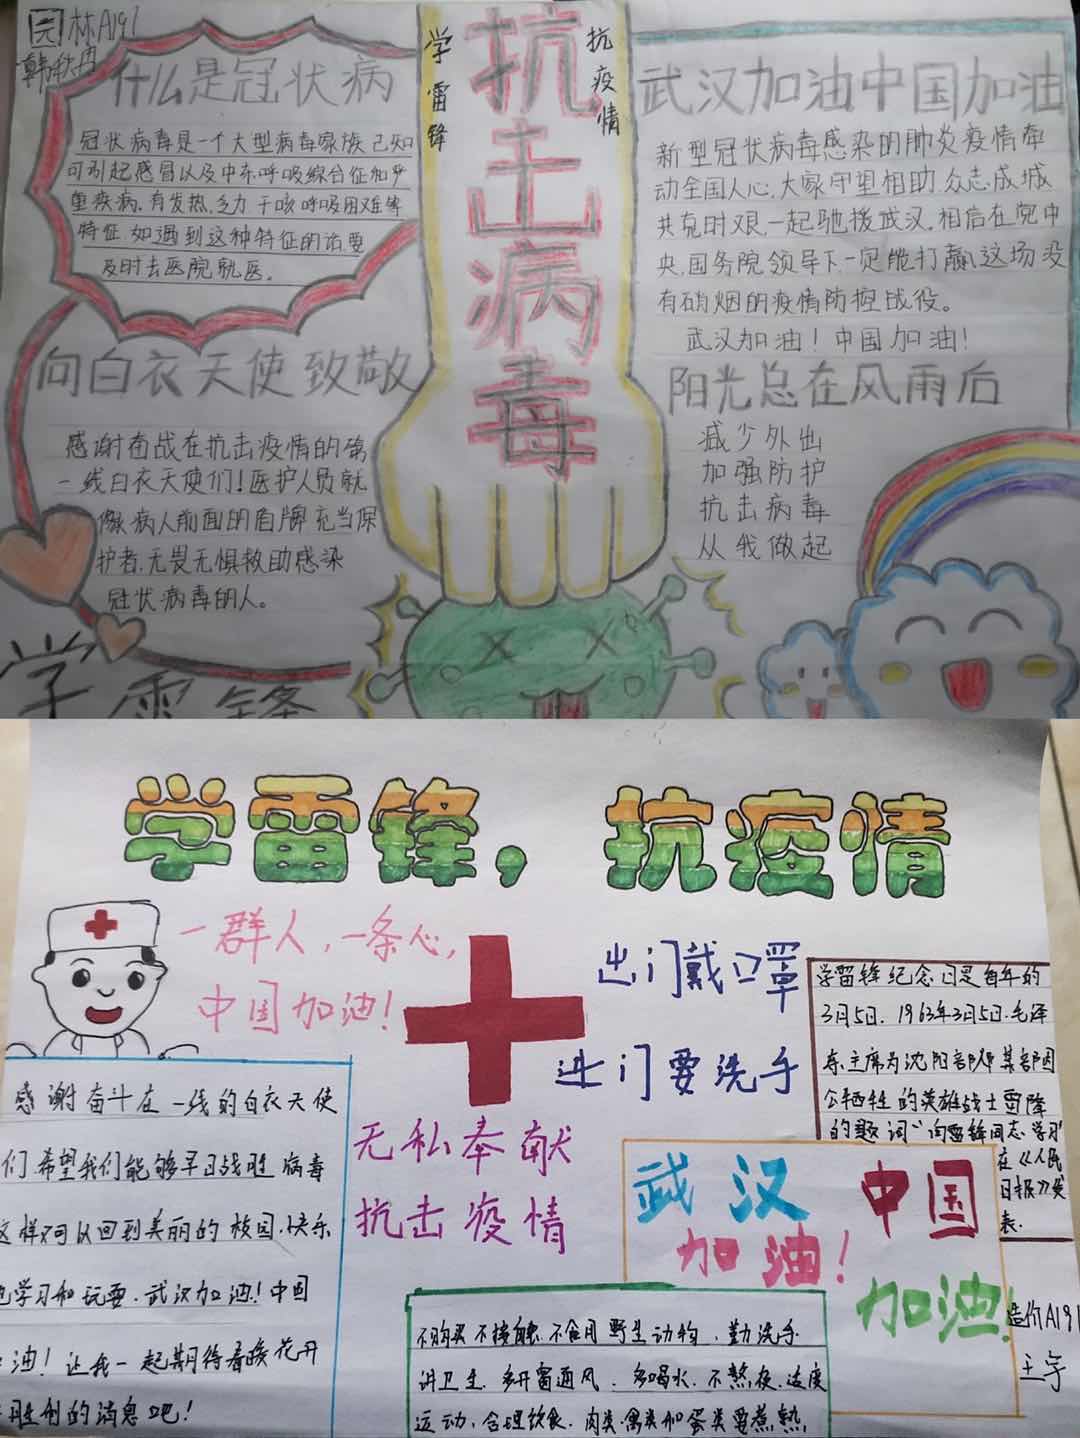 园林A191
韩秋丹
什么是冠状病
冠状病毒是一个大型病毒家族已知
可引起感冒以及中东呼吸综合征和严
重疾病.有发热.乏力干咳呼吸困难等
特征.如遇到这种特征的话要
及时去医院就医。
向白衣天使致敬
感谢奋战在抗击疫情的第
一线白衣天使们!医护人员就
像病人前面的盾牌充当保
护者.无畏无惧救助感染
冠状病毒的人。
学雷锋
学雷锋
抗击病毒
抗疫情
武汉加油中国加油
新型冠状病毒感染的肺炎疫情牵
动全国人心,大家守望相助.众志成城
共克时艰.一起驰援武汉.相信在党中
央.国务院领导下.一定能打赢这场没
有硝烟的疫情防控战役。
武汉加油!中国加油!
阳光总在风雨后
减少外出
加强防护
抗击病毒
从我做起
学雷锋,抗疫情
一群人,一条心,
中国加油!
出门戴口罩
进门要洗手
无私奉献
抗击疫情
感谢奋斗在一线的白衣天使
们希望我们能够早日战胜病毒
这样才可以回到美丽的校园.快乐
地学习和玩耍.武汉加油!中国
油!让我一起期待春暖花开
胜利的消息吧!
学雷锋纪念日是每年的
3月5日.1963年3月5日.毛泽
东主席为沈阳部队某部因
公牺牲的英雄战士雷锋
的题词"向雷锋同志学习"
在《人民
日报》发
表.
武汉
加油!
中国
加油!
不购买不接触不食用野生动物.勤洗手
讲卫生.多开窗通风.多喝水.不熬夜.适度
运动.合理饮食.肉类.禽类和蛋类要煮熟,
造价A191
王宇